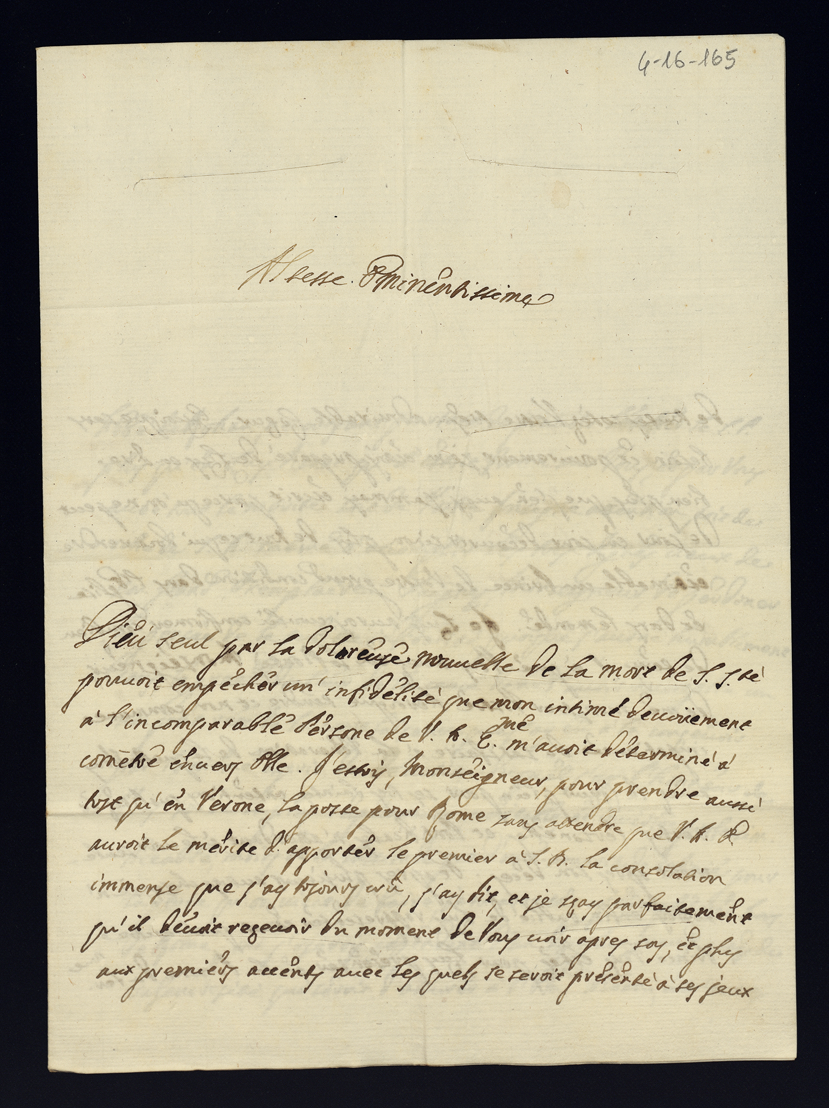 4-16-165
Altesse Eminentissime
Dieu seul par la doloreuse nouvelle de la mort de S. S.té
pouvoit empêcher un' infidélité que mon intime devoüement
à l'incomparable Persone de V. A. E.me m'avoit déterminé à
cometre envers Elle. J'estois, Monseigneur, pour prendre aussi
tost qu'en Verone, la posse pour Rome sans attendre que V. A. E.
auroit le mérite d'apporter le premier à S. A. la consolation
immense que j'ay tojours crû, j'ay dit, et je sçay parfaitement
qu'il devoit reçevoir du moment de Vous voir apres soy, et plus
aux premiers accents avec les quels se seroit présenté à ses jeux